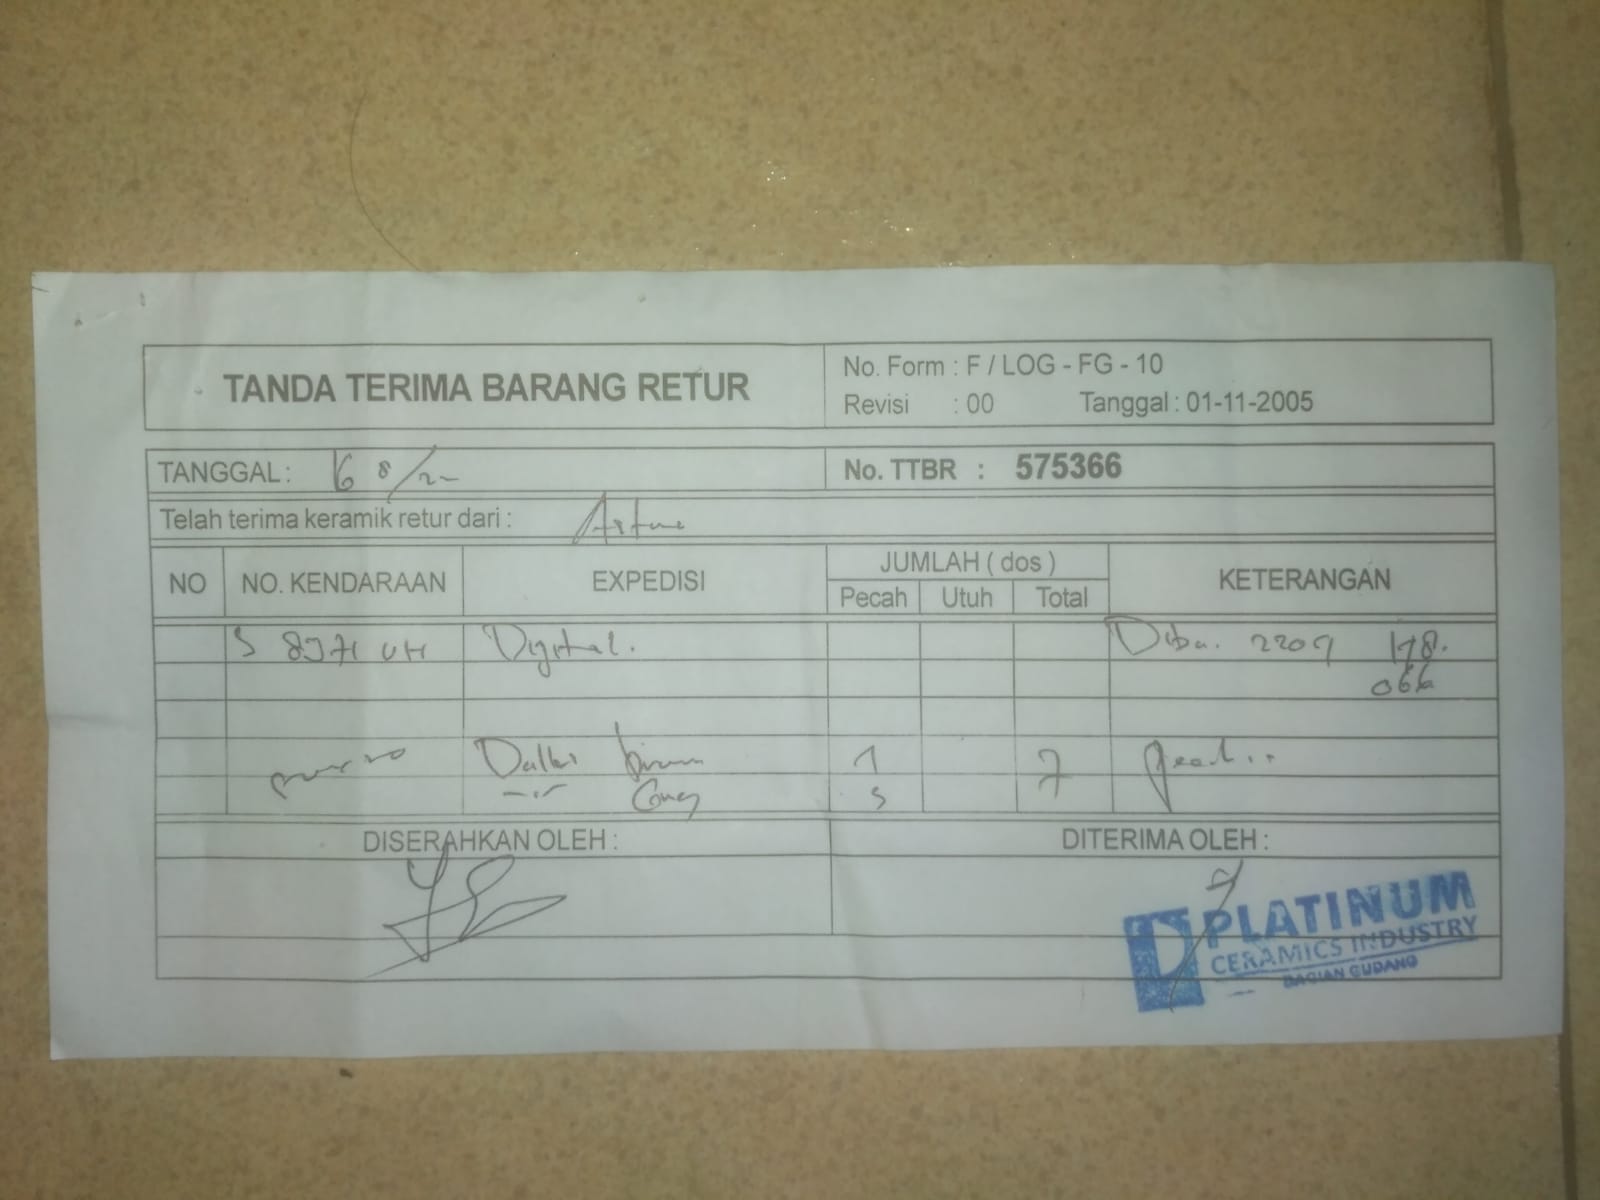 TANDA TERIMA BARANG RETUR
No. Form : F / LOG - FG - 10
Revisi : 00 Tanggal : 01-11-2005
TANGGAL : 16 8/22
No. TTBR : 575366
Telah terima keramik retur dari :
NO NO. KENDARAAN EXPEDISI JUMLAH ( dos ) KETERANGAN
Pecah Utuh Total
S Digital. 2209 H8.
066
7
DISERAHKAN OLEH : DITERIMA OLEH :
PLATINUM
CERAMICS INDUSTRY
BAGIAN GUDANG